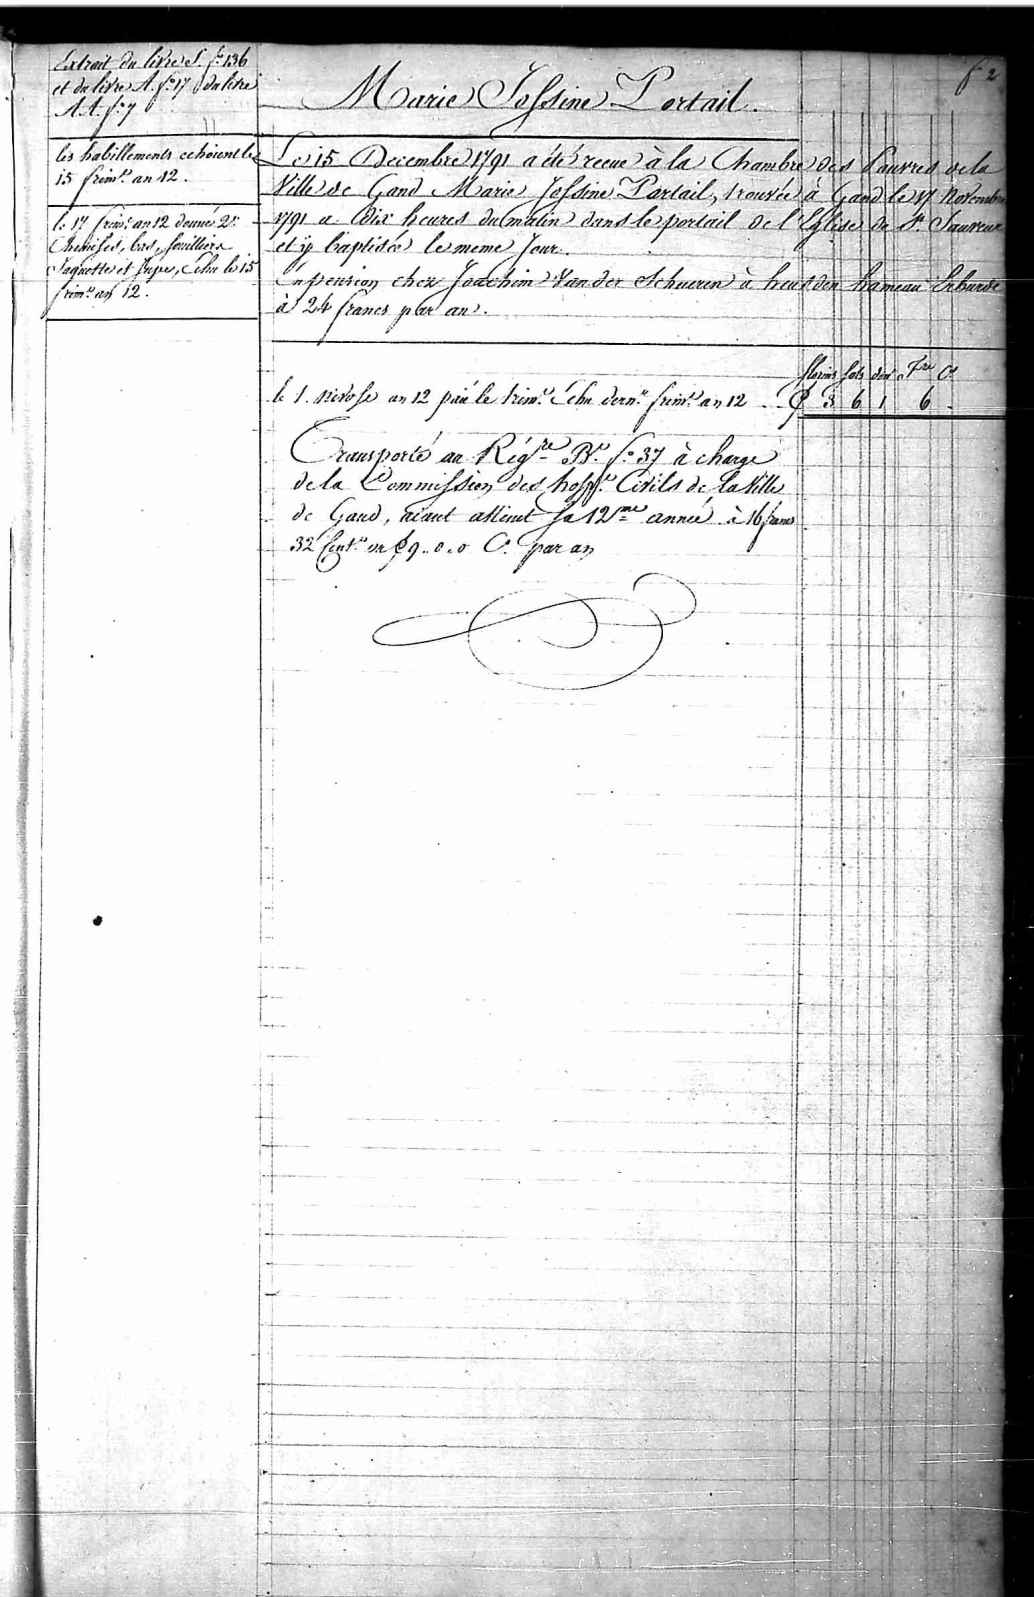 f° 2
Extrait du livre S. f° 136
et du livre A. f° 17 du livre
A.A. f° 7
Marie Jossine Portail.
les habillements echoient le
15 frim.re an 12.
le 17 frim.re an 12 donné 2
Chemises, bas,
Jaquette et Jupe, Echu le 15
frim.re an 12.
Le 15 Decembre 1791 a été recue à la Chambre des Pauvres de la
Ville de Gand Marie Jossine Portail, trouvée à Gand le 17 Novembre
1791 a Dix heures du matin dans le portail de l'Eglise de St. Sauveur
et y baptisée le meme Jour.
En pension chez Joachim Van der Schueren à heusden hameau
à 24 francs par an.
florins sols den Frs Cs
le 1. Nivose an 12 païé le trim.e Echu dern.r frim.re an 12 .. 3 6 1 6 -
Transporté au Régre B. f° 37 à charge
de la Commission des hosp.s Civils de la Ville
de Gand, aiant atteint sa 12me année à 16 francs
32 Cent.s ou £ 9..0..0 C.t par an